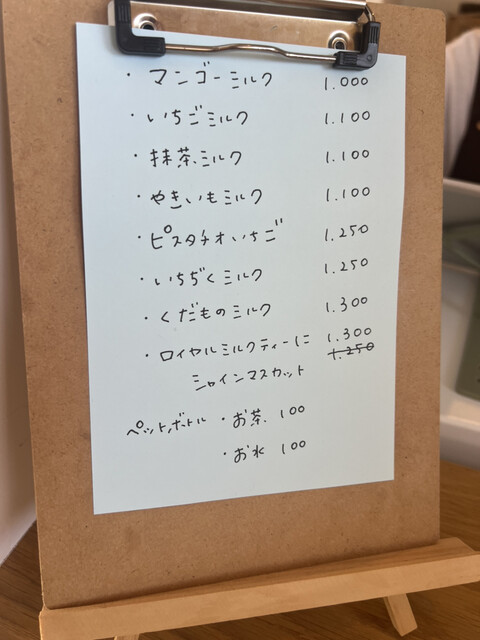 ・マンゴーミルク 1.000
・いちごミルク 1.100
・抹茶ミルク 1.100
・やきいもミルク 1.100
・ピスタチオいちご 1.250
・いちぢくミルク 1.250
・くだものミルク 1.300
・ロイヤルミルクティーに 1.300
1.250
シャインマスカット
ペットボトル ・お茶 100
・お水 100